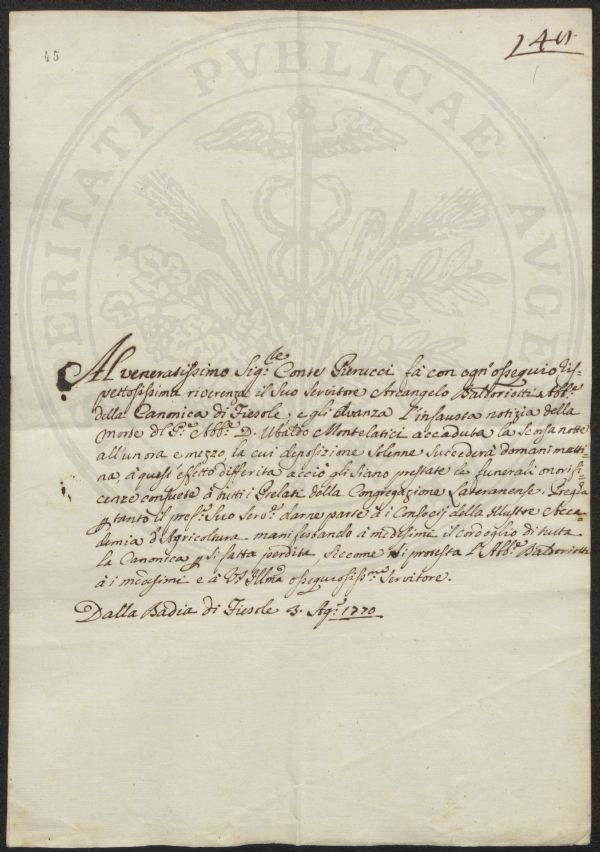 45
140.
VERITATI PVBLICAE AVGE
Al veneratissimo Sig.le Conte Pierucci fà con ogn'ossequio ris-
pettosissima riverenza il Suo Servitore Arcangelo Baldoriotti Abb.e
della Canonica di Fiesole, e gli avanza l'infausta notizia della
Morte del P.re Abb.e D. Ubaldo Montelatici accaduta la scorsa notte
all'un'ora e mezzo, la cui deposizione Solenne Succederà domani matti-
na, à quest'effetto differita acciò gli siano prestate le funerali onrifi-
cenze consuete à tutti i Prelati della Congregazione Lateranense. Prega
p tanto il pred.o Suo Serv.e darne parte à i Consoci della Illustre Acca-
demia d'Agricoltura manifestando à medesimi il cordoglio di tutta
la Canonica p si fatta perdita siccome si protesta l'Abb.e Baldoriotti
à i medesimi e à VS Ill.ma ossequiosiss.mo Servitore.
Dalla Badia di Fiesole 3. Ag.o 1770